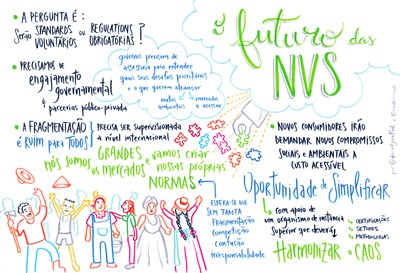 • A PERGUNTA É:
Serão STANDARDS VOLUNTÁRIOS OU REGULATIONS OBRIGATÓRIAS?
• PRECISAMOS DE
engajamento
governamental
& parcerias público-privada
• A FRAGMENTAÇÃO
É RUIM PARA TODOS!
PRECISA SER SUPERVISIONADA
A NÍVEL INTERNACIONAL
governos precisam de
assessoria para entender
quais seus desafios prioritários
e o que querem alcançar
metas ambientais
mercados a acessar
O futuro das
NVS
nós somos GRANDES
os mercados e vamos criar
nossas próprias
NORMAS
• NOVOS CONSUMIDORES IRÃO
DEMANDAR NOVOS COMPROMISSOS
SOCIAIS e AMBIENTAIS A
CUSTO ACESSÍVEL
ESPERA-SE QUE
SEM TANTA
FRAGMENTAÇÃO
Competição
Confusão
Irresponsabilidade
Oportunidade de Simplificar
Com apoio de
um organismo de instância
Superior que deverá
Harmonizar o CAOS
CERTIFICAÇÕES
SETORES
METODOLOGIAS